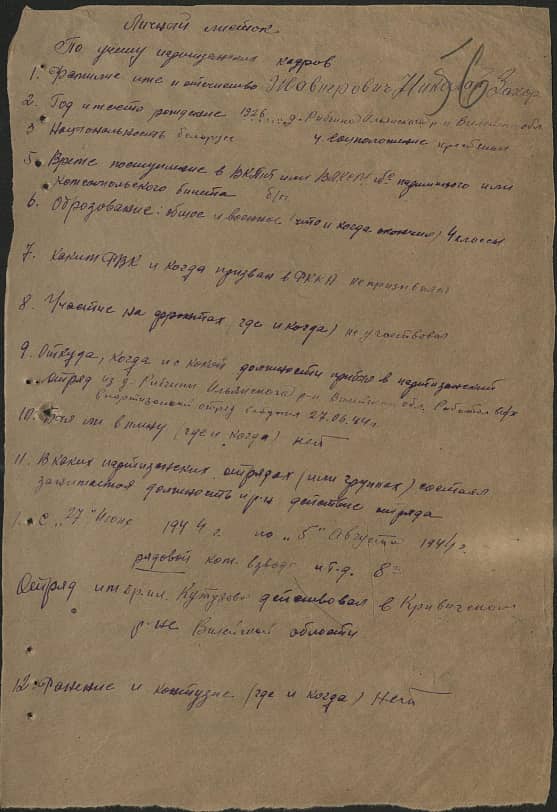 Личный листок
По учету партизанских кадров
1. Фамилие имя и отчество Жавнерович Николай Захар
56
2. Год и место рождение 1926 д. Рабунь Ильянского р-н Вилейск обл.
3 Национальность белорус 4. соцположение крестьян
5 Время поступление в ВКП/б или ВЛКСМ № партийного или
Комсомольского билета б/п
6. Образование: общое и военное (что и когда окончил) 4 классы
7. Каким РВК и когда призван в РККА не призывался
8. Участие на фронтах (где и когда) не участвовал
9. Откуда, когда и с какой должности прибыл в партизанский
отряд из д. Ильянского р-н Вилейской обл. Работал в с/х
В партизанский отряд вступил 27.06.44 г.
10. Был ли в плену (где и когда) нет
11. В каких партизанских отрядах (или группах) состоял
занимаемая должность и р-н действие отряда
1. с "27" Июня 1944 г. по "5" Августа 1944 г.
рядовой ком. взвода и т.д.
Отряд имени Кутузова действовал в Кривичском
р-не Вилейской области
12 Ранение и контузие (где и когда) нет